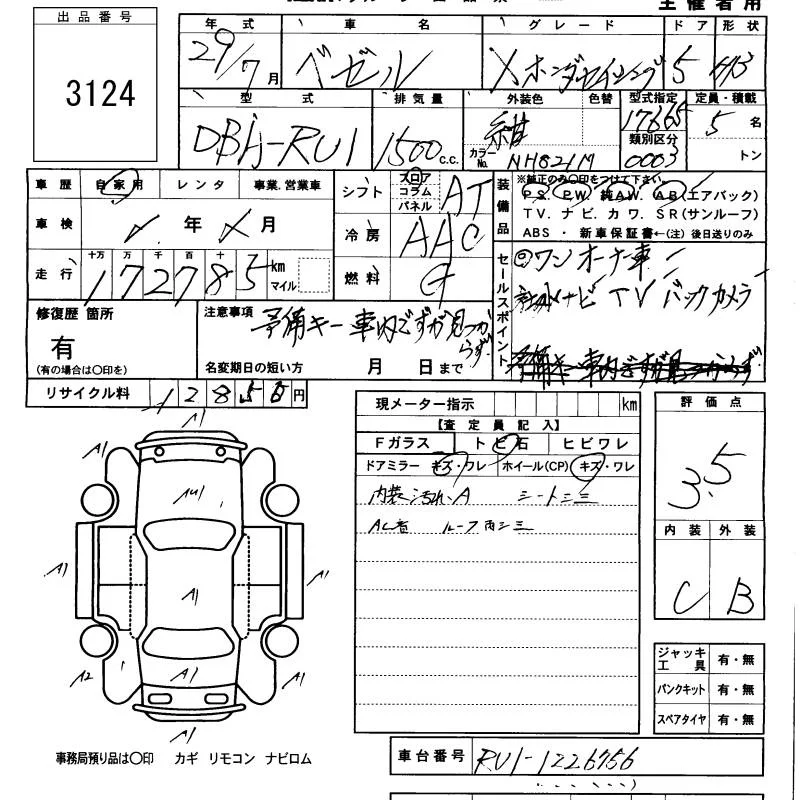 主催者用
出品番号
3124
年式 車名 グレード ドア 形状
29/7月 ベゼル Xホンダセンシング 5 HB
型式 排気量 外装色 色替 型式指定 定員・積載
DBA-RU1 1500 c.c. 紺 17665 5名
カラーNo. NH821M 類別区分 0003 トン
車歴 自家用 レンタ 事業、営業車
シフト フロア コラム パネル AT
装備品 ※純正のみ〇印をつけて下さい。
P.S. P.W. 純A.W. A.B(エアバッグ)
T.V. ナビ. カワ. S.R(サンルーフ)
ABS ・ 新車保証書←(注) 後日送りのみ
車検 年 月
冷房 AAC
走行 十万 万 千 百 十
172785 km マイル
燃料 G
セールスポイント
◎ワンオーナー車
ナビ TV バックカメラ
修復歴 箇所
有
(有の場合は〇印を)
注意事項 予備キー車内ですが見つからず.
名変期日の短い方 月 日まで
リサイクル料 12850円
現メーター指示 km
【査定員記入】
Fガラス トビ石 ヒビワレ
ドアミラー キズ・ワレ ホイール(CP) キズ・ワレ
内装汚れ.A シートシミ
ルーフ内シミ
評価点
3.5
内装 外装
C B
A1
A1
A1
AU1
A1
A1
A1
A2
A1
A1
A1
ジャッキ工具 有・無
パンクキット 有・無
スペアタイヤ 有・無
事務局預り品は〇印 カギ リモコン ナビロム
車台番号 RU1-1226756